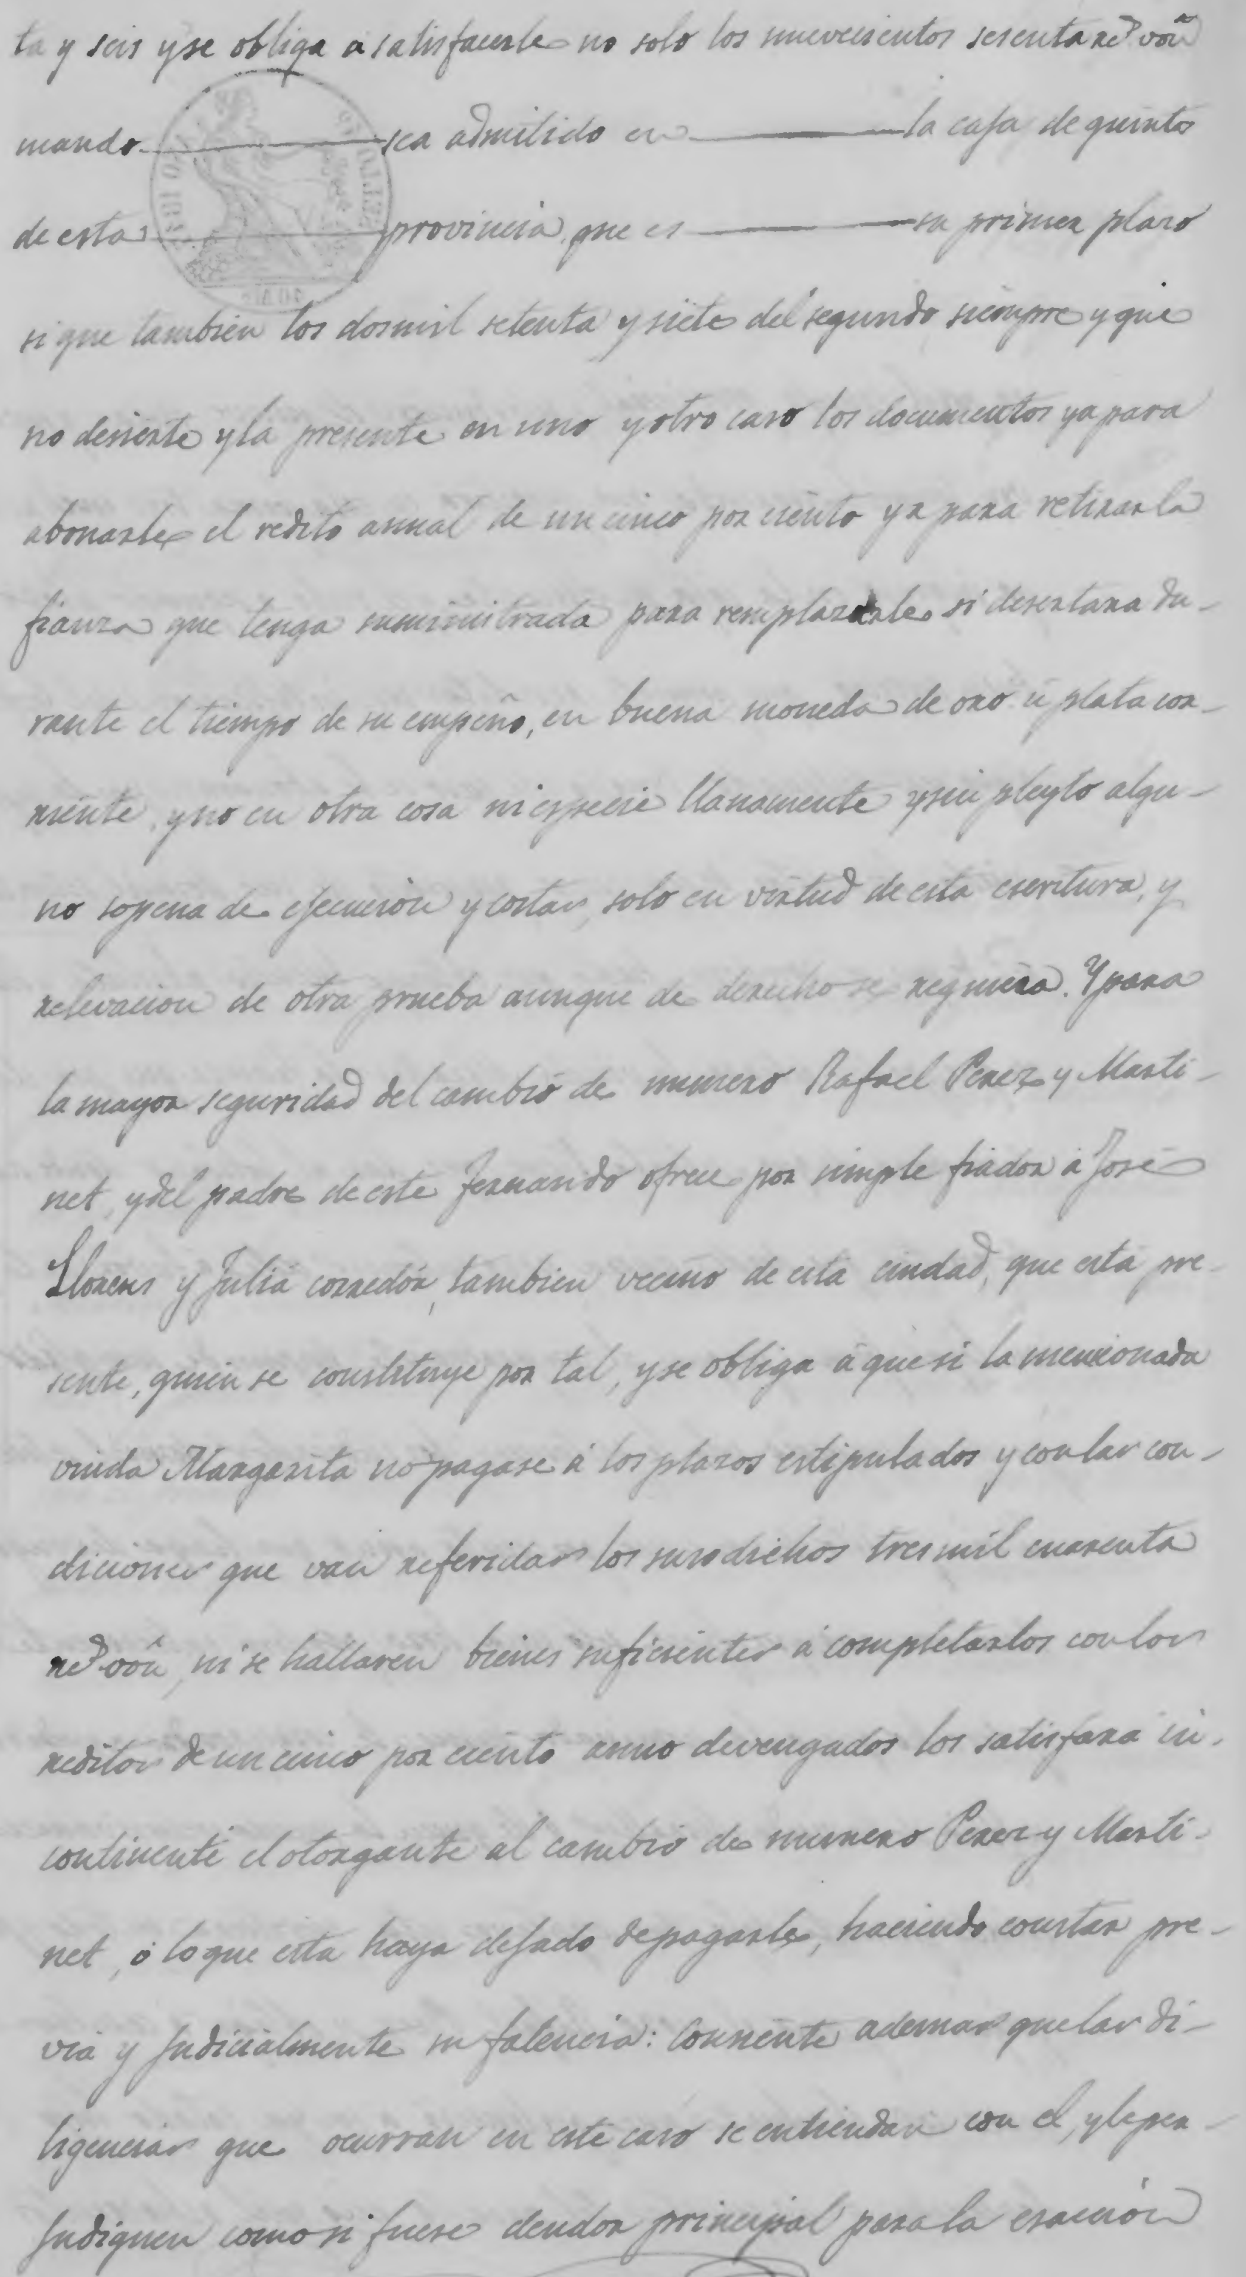 ta y seis y se obliga á satisfacerle no solo los nuevecientos sesenta r.ᵈ vōn
mando sea admitido en la caja de quintos
de esta provincia, que es su primer plazo
si que tambien los dosmil setenta y siete del segundo siempre y que
no desierte y la presente en uno y otro caso los documentos ya para
abonarle el redito annual de un cinco por ciento ya para retirar la
fianza que tenga suministrada para remplazarle si desertara du-
rante el tiempo de su empeño, en buena moneda de oro ú plata cor-
riente, y no en otra cosa ni especie llanamente y sin pleyto algu-
no sopena de ejecucion y costas, solo en virtud de esta escritura, y
relevacion de otra prueba aunque de derecho se requiera. Y para
la mayor seguridad del cambio de numero Rafael Perez y Marti-
net, y del padre de este Fernando ofrece por simple fiador á José
Llorens y Juliá corredór, tambien vecino de esta ciudad, que está pre-
sente, quien se constituye por tal, y se obliga á que si la mencionada
viuda Margarita no pagase á los plazos estipulados y con las con-
diciones que van referidas los susodichos tresmil cuarenta
r.ᵈ vōn, ni se hallaren bienes suficientes á completarlos con los
reditos de un cinco por ciento annuo devengados los satisfará in-
continenti el otorgante al cambio de numero Perez y Marti-
net, ó lo que esta haya dejado de pagarle, haciendo constar pre-
via y judicialmente su falencia: consiente ademas que las di-
ligencias que ocurran en este caso se entiendan con el, y le per-
judiquen como si fuese deudor principal para la esaccion